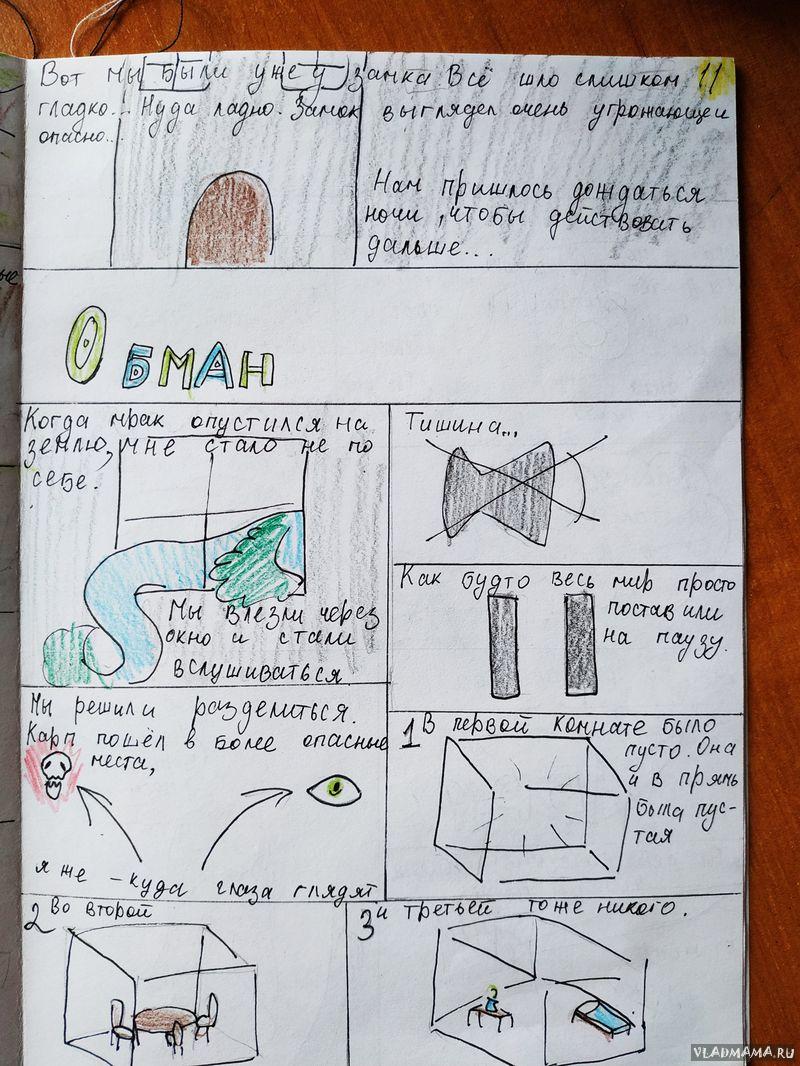 Вот мы были уже у замка Всё шло слишком 11
гладко... Нуда ладно. Замок выглядел очень угрожающеи
опасно...
Нам пришлось дождаться
ночи, чтобы действовать
дальше...
ОБМАН
Когда мрак опустился на
землю, мне стало не по
себе.
Мы влезли через
окно и стали
вслушиваться
Тишина...
Как будто весь мир просто
поставили
на паузу.
Мы решили разделиться.
Карп пошёл в более опасные
места,
я же - куда глаза глядят
1 В первой комнате было
пусто. Она
и в прямь
была пус-
тая
2 Во второй
3 и третьей тоже никого.
VLADMAMA.RU